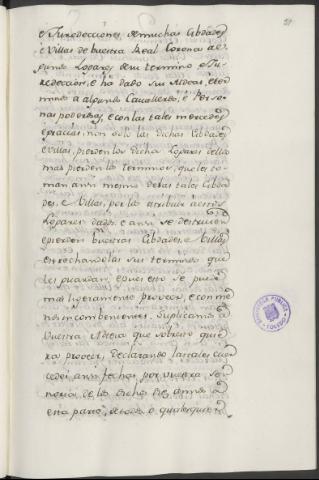 é Jurodecciones, de muchas Cibdades
é Villas de buestra Real Corona al
gunos Logares, de su termino é Ju
redeccion, é ha dado sus Aldeas, é ter
minos a algunos Cavalleros, é Perso
nas poderosas, e con las tales mercedes
é gracias, non solo las dichas Cibdades
é villas, pierden los dichos logares é ella
mas pierden los terminos, que les to
man ansi mesmo de las tales Cibda
des, é Villas, por los
Logares dados, e ansi se destruien
é pierden buestras Cibdades, e Villas
estrechandolas sus terminos que
les quardan, é pues esto se puede
mas ligeramente proveer, e con me
nos incombenientes. Suplicamos á
Vuestra Alteza que sobre ello quie
ra proveer, Declarando las tales
cedes ansi fechas por vuestra Se
noria, de los dichos Diez annos á
esta parte, de todo, o qualesquier
BIBLIOTECA PUBLICA
TOLEDO